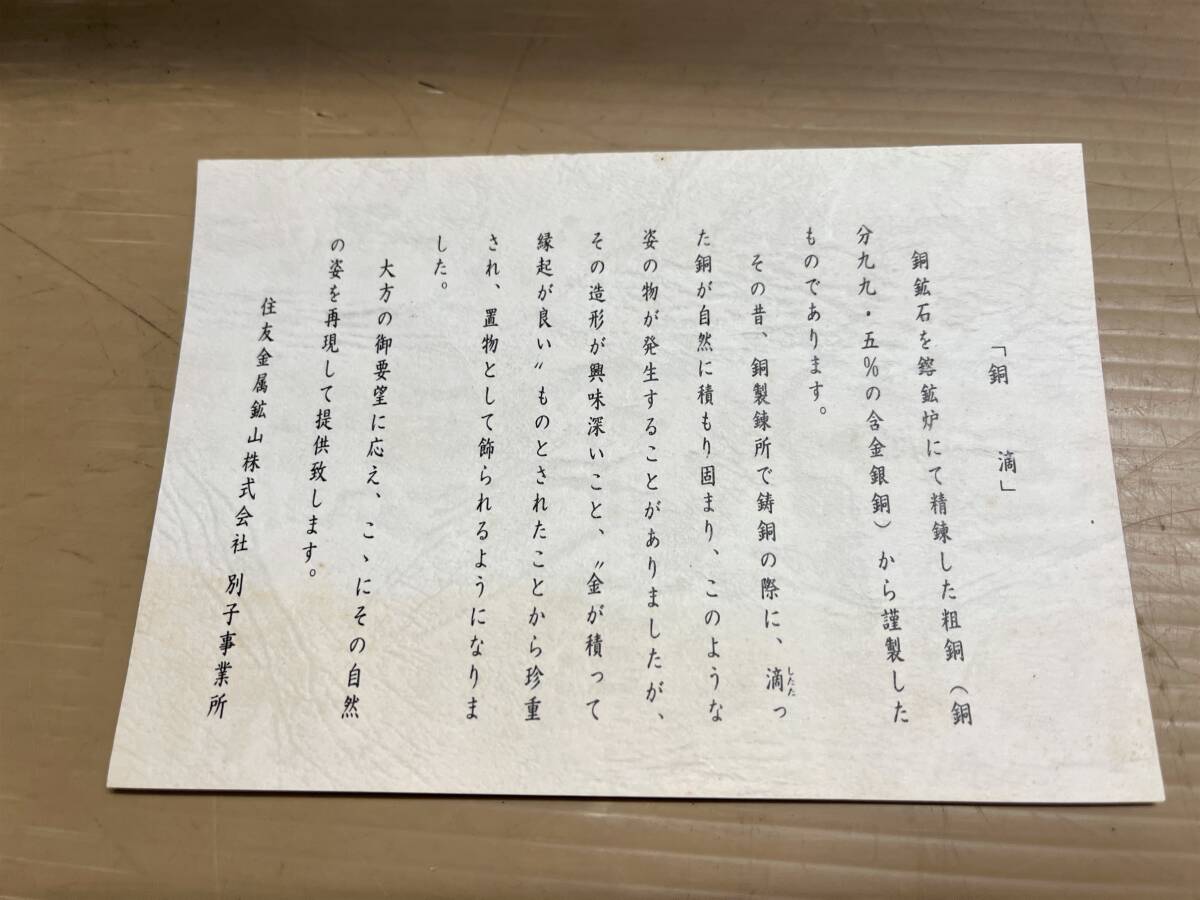 「銅　滴」
銅鉱石を鎔鉱炉にて精錬した粗銅（銅
分九九・五％の含金銀銅）から謹製した
ものであります。
その昔、銅製錬所で鋳銅の際に、滴っ
したた
た銅が自然に積もり固まり、このような
姿の物が発生することがありましたが、
その造形が興味深いこと、〝金が積って
縁起が良い〟ものとされたことから珍重
され、置物として飾られるようになりま
した。
大方の御要望に応え、こゝにその自然
の姿を再現して提供致します。
住友金属鉱山株式会社 別子事業所